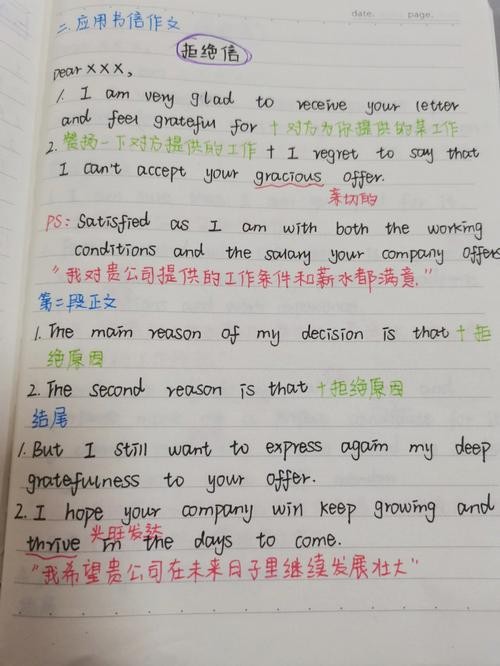 date.          page.
二. 应用书信作文
拒绝信
Dear XXX,
1. I am very glad to receive your letter
and feel grateful for + 对方为你提供的某工作
2. 赞扬一下对方提供的工作 + I regret to say that
I can't accept your gracious offer.
亲切的
PS: Satisfied as I am with both the working
conditions and the salary your company offers
"我对贵公司提供的工作条件和薪水都满意."
第二段正文
1. The main reason of my decision is that + 拒
绝原因
2. The second reason is that + 拒绝原因
结尾
1. But I still want to express again my deep
gratefulness to your offer.
2. I hope your company win keep growing and
兴旺发达
thrive in the days to come.
"我希望贵公司在未来日子里继续发展壮大"